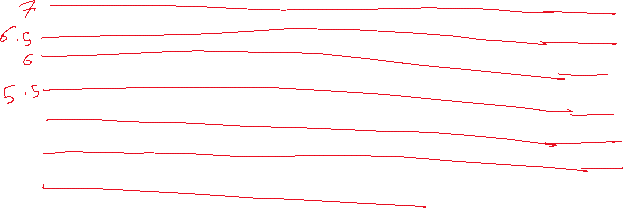 7
6.5
6
5.5